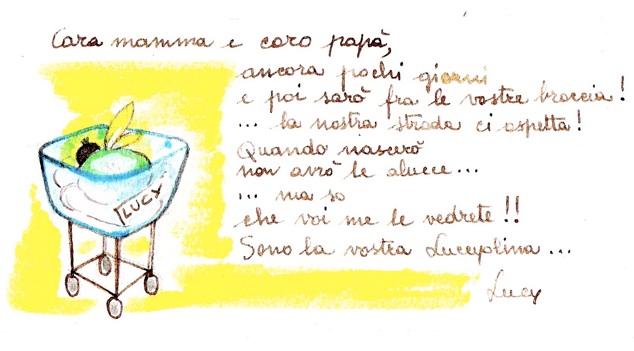 Cara mamma e caro papà,
ancora pochi giorni
e poi sarò fra le vostre braccia!
... la nostra strada ci aspetta!
Quando nascerò
non avrò le alucce...
... ma so
che voi me le vedrete!!
Sono la vostra Luccyolina...
Lucy
LUCY